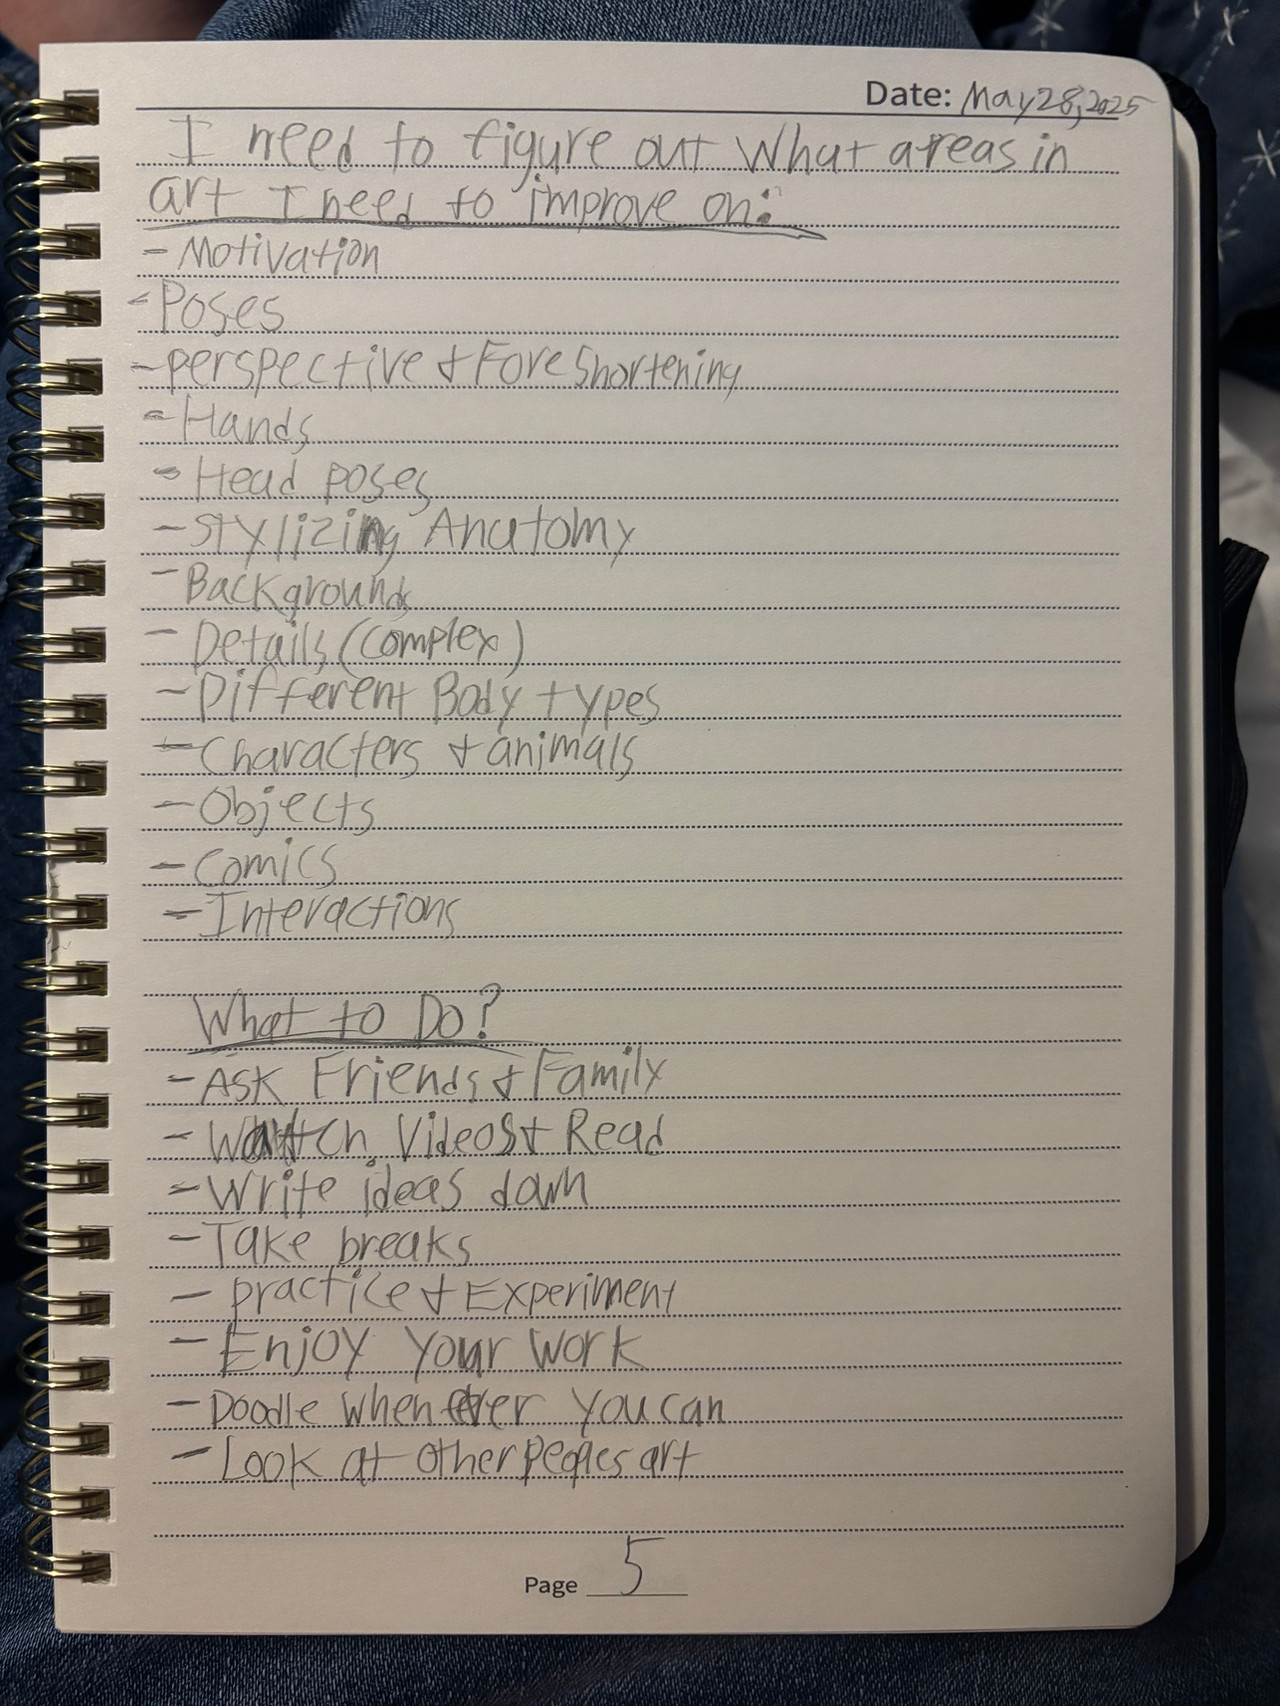 Date: May 28, 2025
I need to figure out What areas in
art I need to improve on:
- Motivation
- Poses
- perspective & Foreshortening
- Hands
- Head poses
- Stylizing Anatomy
- Backgrounds
- Details (complex)
- Different Body types
- Characters & animals
- Objects
- Comics
- Interactions
What to Do?
- Ask Friends & Family
- Watch Videos & Read
- Write ideas down
- Take breaks
- practice & Experiment
- Enjoy Your Work
- Doodle whenever you can
- Look at other peoples art
Page 5